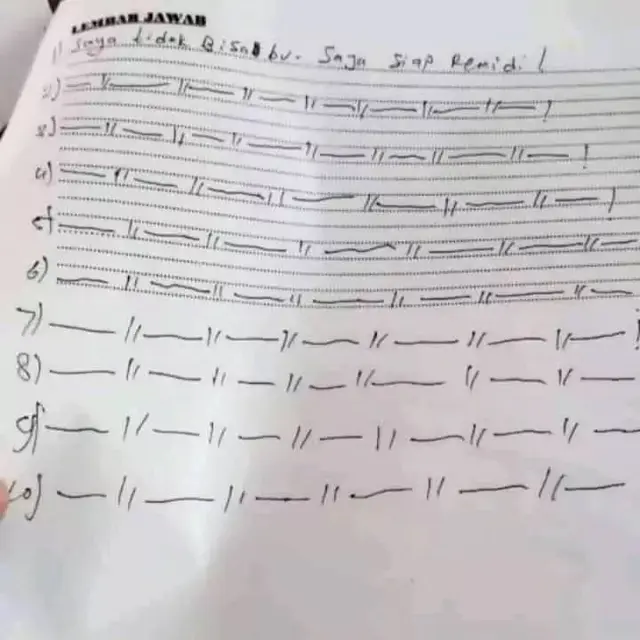 LEMBAR JAWAB
1) Saya tidak Bisa bu. Saya Siap Remidi!
2) — // — // — // — // — // — // — !
3) — // — // — // — // — // — // — !
4) — // — // — // — // — // — // — !
5) — // — // — // — // — // — // —
6) — // — // — // — // — // — // —
7) — // — // — // — // — // — // — !
8) — // — // — // — // — // — // —
9) — // — // — // — // — // — // —
10) — // — // — // — // — // —